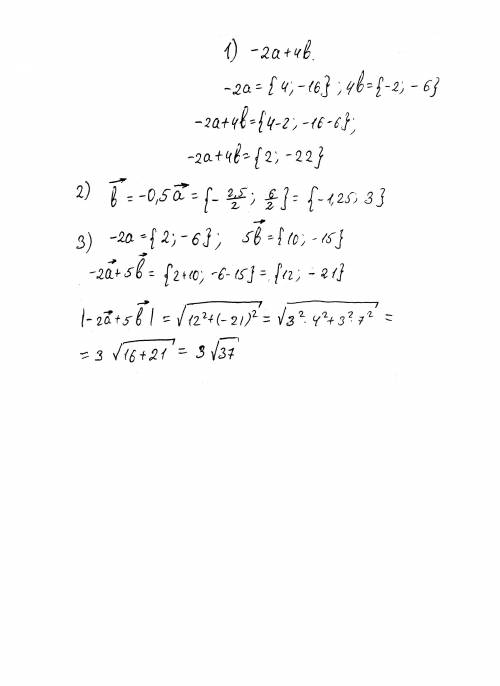 1) -2a+4b.
-2a={4; -16}; 4b={-2; -6}
-2a+4b={4-2; -16-6};
-2a+4b={2; -22}
2) b⃗ = -0,5a⃗ = {-2,5/2; 6/2} = {-1,25; 3}
3) -2a⃗={2; -6}; 5b⃗={10; -15}
-2a⃗+5b⃗ = {2+10; -6-15}={12; -21}
|-2a⃗+5b⃗| = √(12²+(-21)²) = √(3²·4²+3²·7²) =
= 3 √(16+21) = 3√37